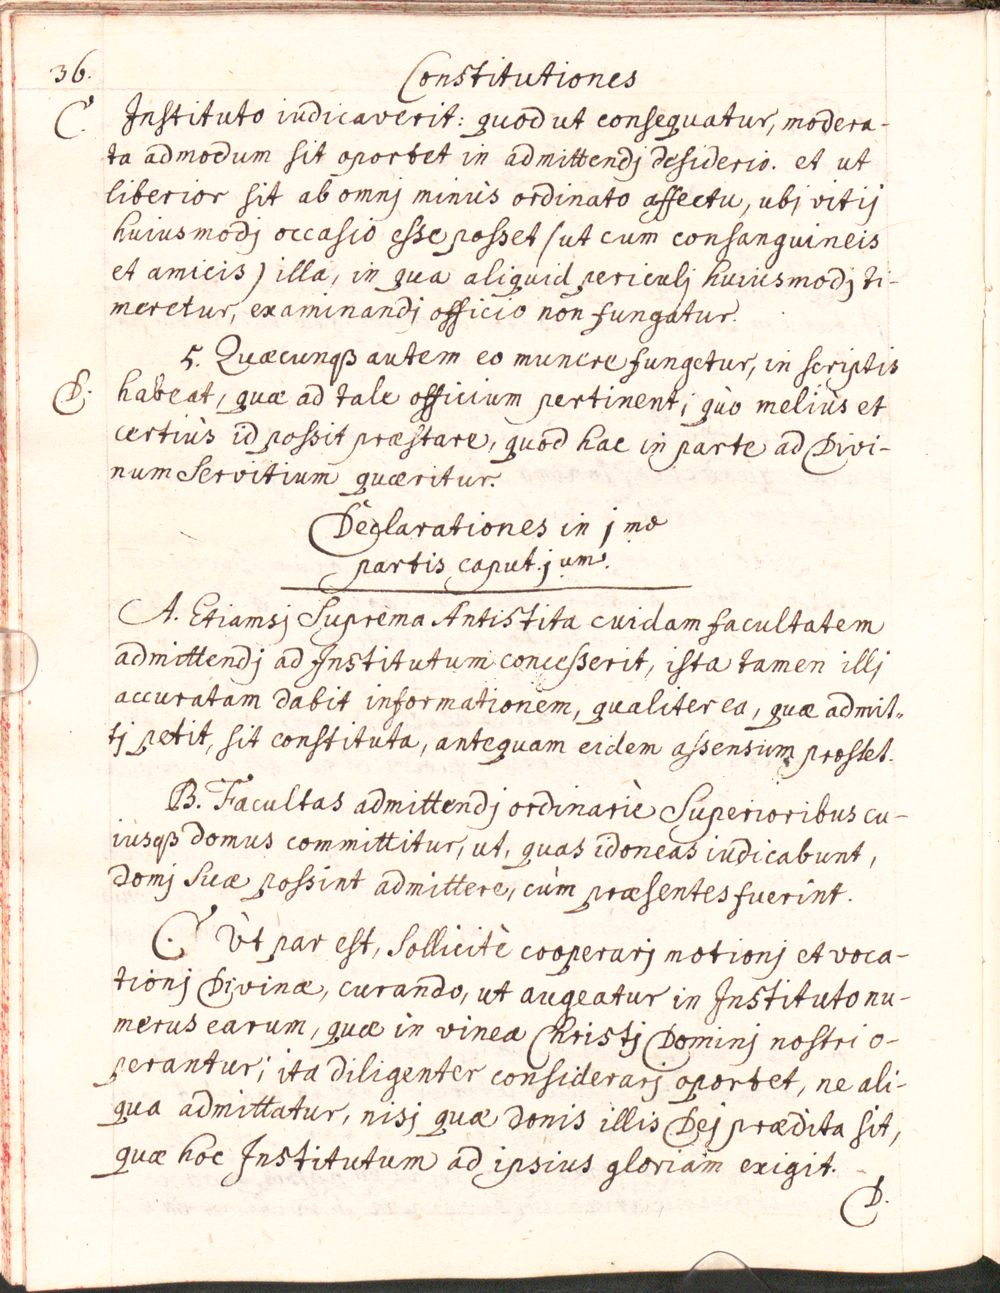 36.
Constitutiones
C
Instituto iudicaverit: quod ut consequatur, modera-
ta admodum sit oportet in admittendj desiderio. et ut
liberior sit ab omnj minùs ordinato affectu, ubj vitij
huiusmodj occasio esse posset (ut cum consanguineis
et amicis) illa, in qua aliquid periculj huiusmodj ti-
meretur, examinandj officio non fungatur.
5. Quæcunqß autem eo munere fungetur, in scriptis
D.
habeat, quæ ad tale officium pertinent; quò meliùs et
certiùs id possit præstare, quod hac in parte ad Divi-
num Servitium quæritur.
Declarationes in j mæ
partis caput. j um.
A. Etiamsj Suprema Antistita cuidam facultatem
admittendj ad Institutum concesserit, ista tamen illj
accuratam dabit informationem, qualiter ea, quæ admit„
tj petit, sit constituta, antequam eidem assensum præstet.
B. Facultas admittendj ordinariè Superioribus cu-
iusqß domus committitur, ut, quas idoneas iudicabunt,
domj suæ possint admittere, cùm præsentes fuerint.
C. Ùt par est, sollicitè cooperarj motionj et voca-
tionj Divinæ, curando, ut augeatur in Instituto nu-
merus earum, quæ in vinea Christj Dominj nostri o-
perantur; ita diligenter considerarj oportet, ne ali-
qua admittatur, nisj quæ donis illis Dej prædita sit,
quæ hoc Institutum ad ipsius gloriam exigit.
D.